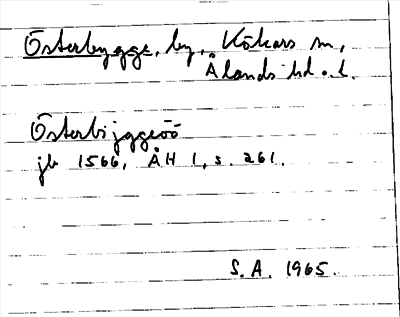 Österbygge, by, Kökars sn,
Ålands hd o. l.
Österbijggeöö
jb 1566, ÅH 1, s. 261.
S.A. 1965.